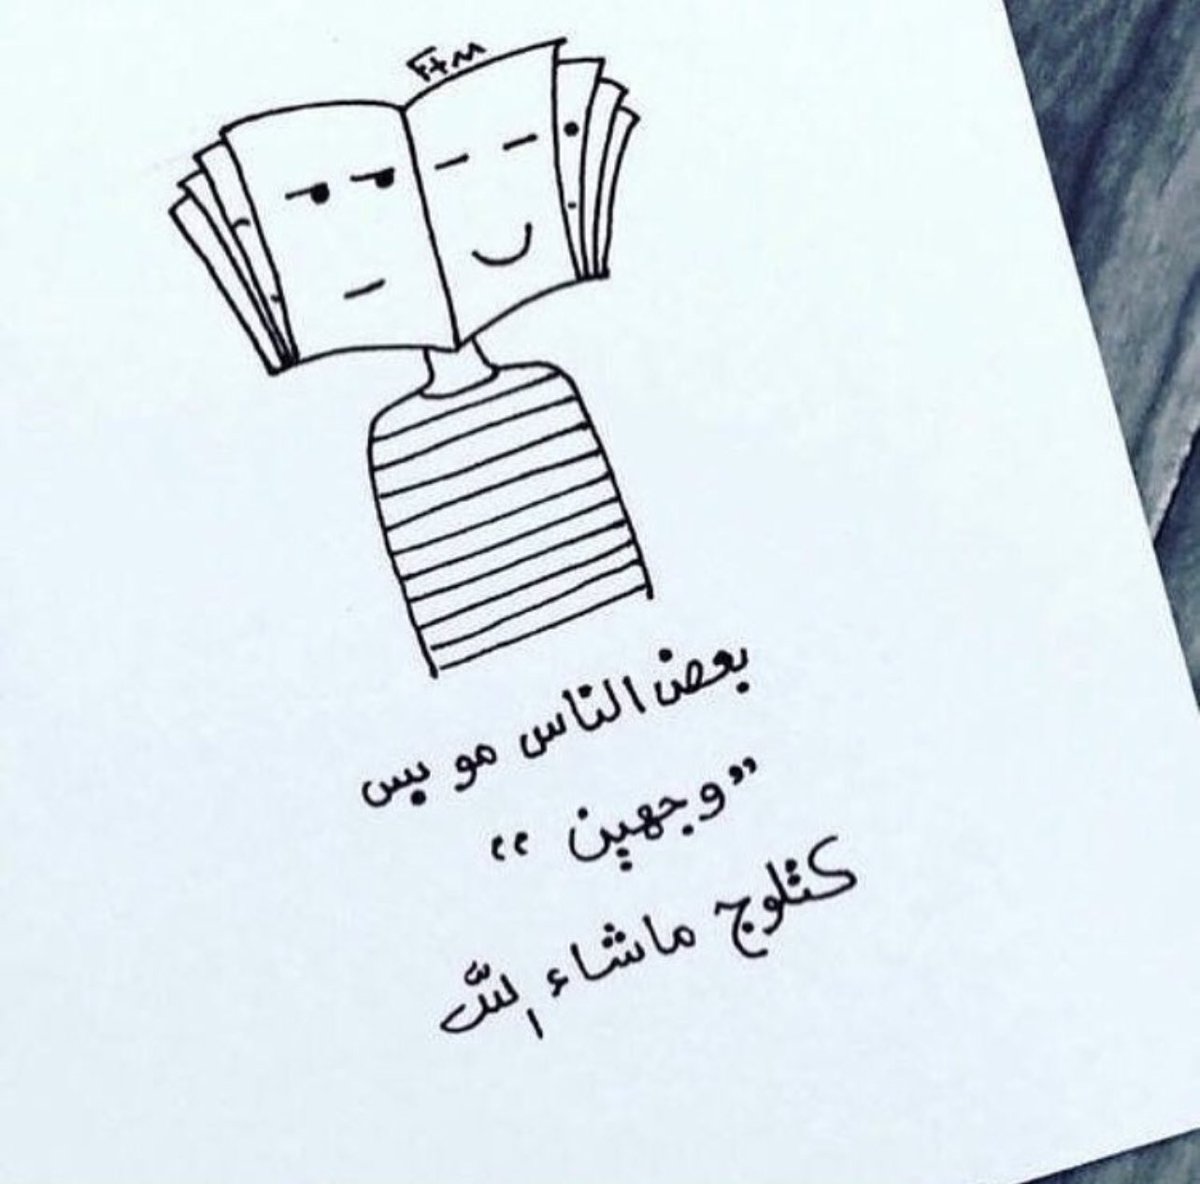 بعض الناس مو بس
"وجهين"
كتلوج ماشاء الله